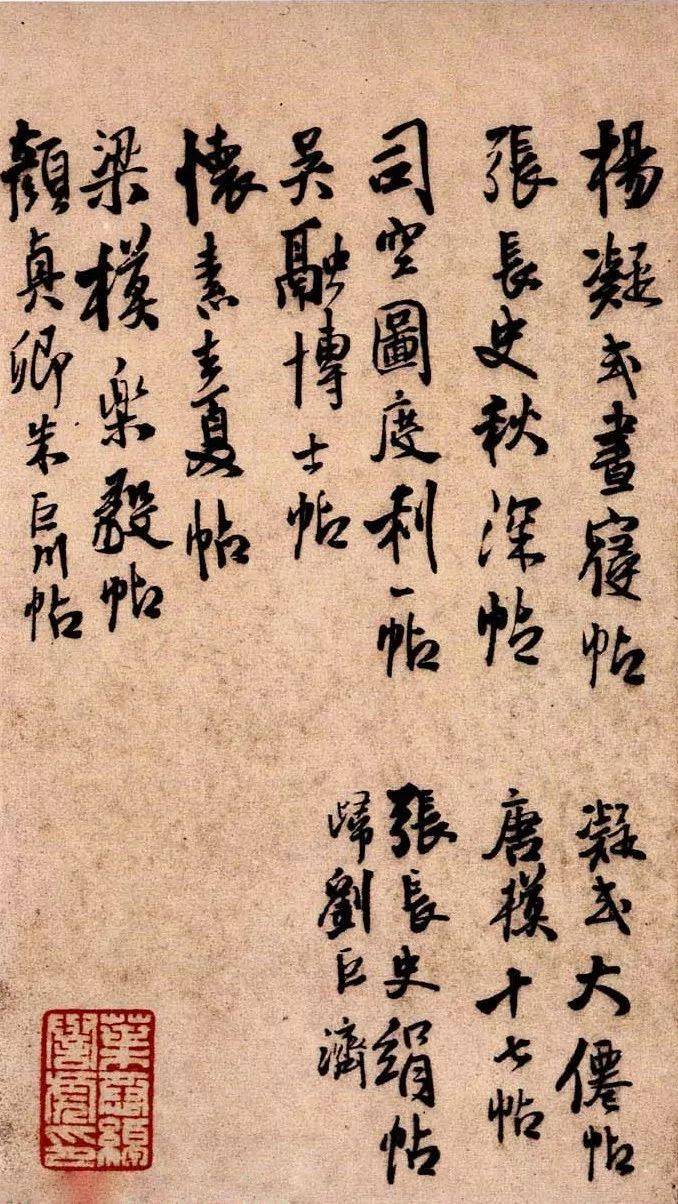 楊凝式晝寢帖
張長史秋深帖
司空圖度利一帖
吳融博士帖
懷素去夏帖
梁模樂毅帖
顏真卿朱巨川帖
凝式大僊帖
唐模十七帖
張長史絹帖
歸劉巨濟
葉恭綽
譽虎印